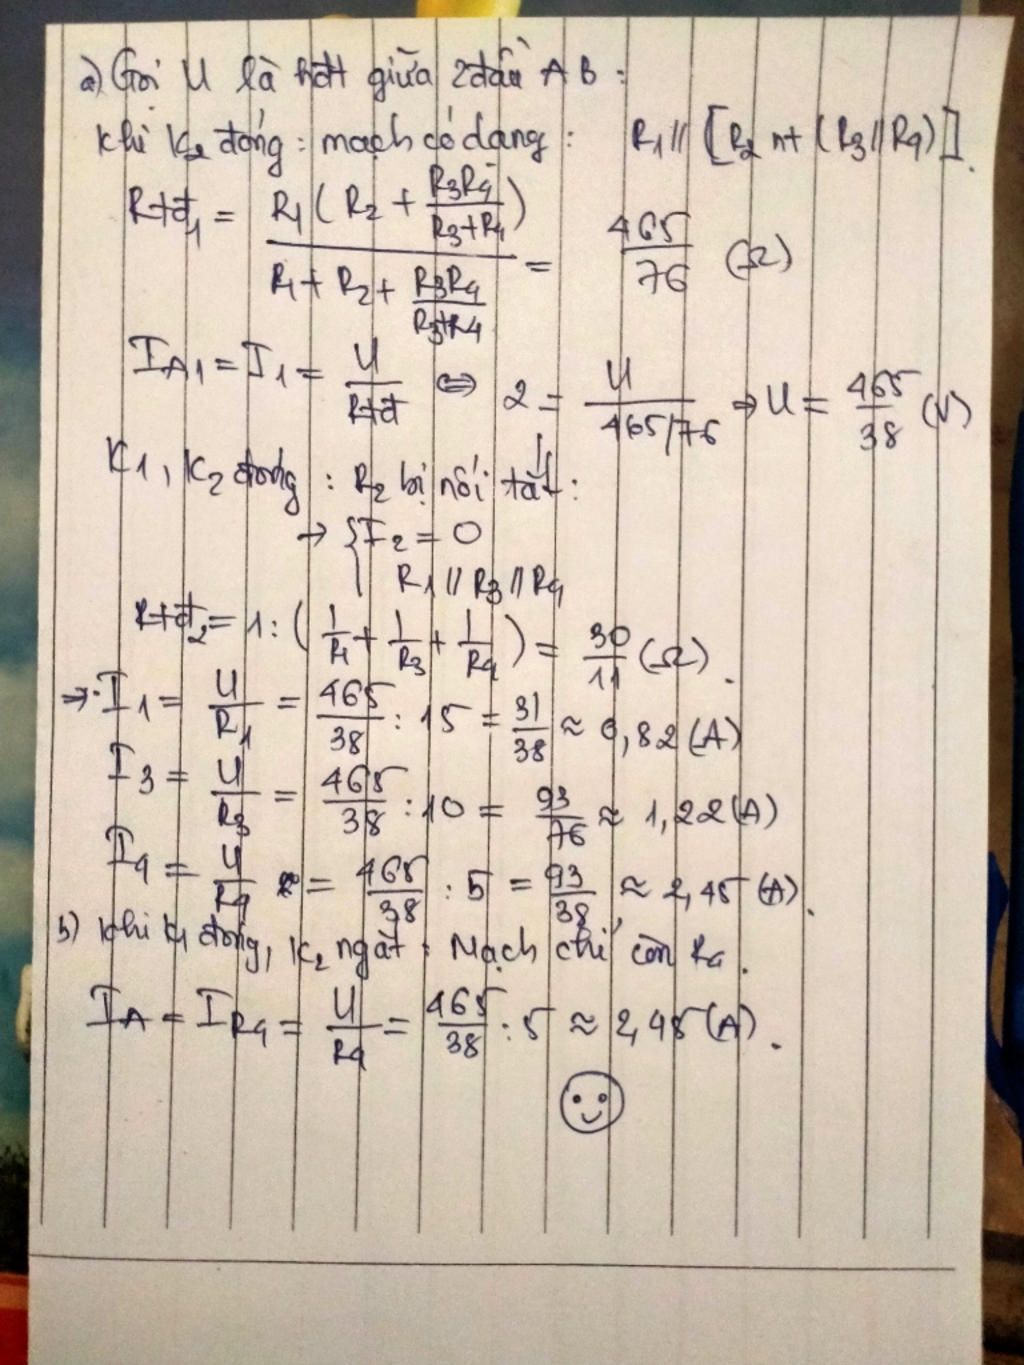 a) Gọi U là hđt giữa 2 đầu A B :
Khi K2 đóng : mạch có dạng : R1 // [R2 nt (R3 // R4)].
Rtđ1 = R1 ( R2 + R3R4 / R3+R4 ) / R1 + R2 + R3R4 / R3+R4 = 465/76 (Ω)
IA1 = I1 = U/Rtđ ⇔ 2 = U / 465/76 → U = 465/38 (V)
K1, K2 đóng : R2 bị nối tắt :
→ { I2 = 0
R1 // R3 // R4
Rtđ2 = 1 : ( 1/R1 + 1/R3 + 1/R4 ) = 30/11 (Ω).
→ I1 = U/R1 = 465/38 : 15 = 31/38 ≈ 0,82 (A)
I3 = U/R3 = 465/38 : 10 = 93/76 ≈ 1,22 (A)
I4 = U/R4 = 465/38 : 5 = 93/38 ≈ 2,45 (A).
b) Khi K1 đóng, K2 ngắt : Mạch chỉ còn R4.
IA = IR4 = U/R4 = 465/38 : 5 ≈ 2,45 (A).